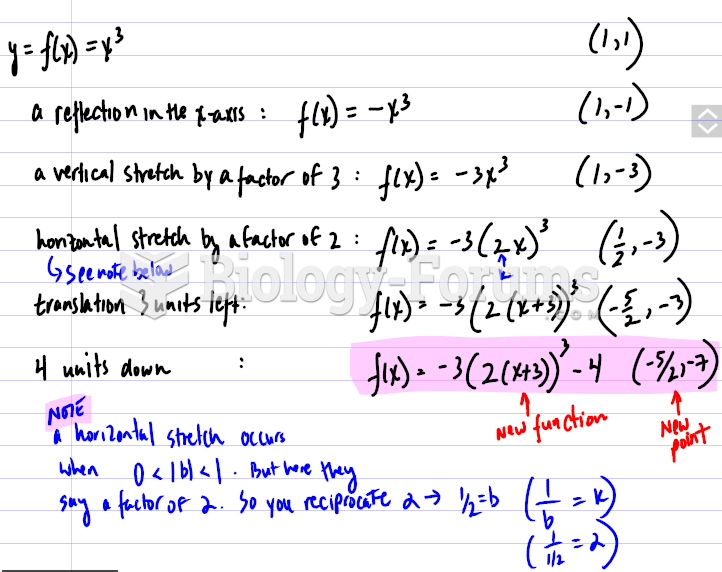 y = f(x) = x³ (1,1)
a reflection in the x-axis : f(x) = -x³ (1,-1)
a vertical stretch by a factor of 3 : f(x) = -3x³ (1,-3)
horizontal stretch by a factor of 2 : f(x) = -3(2x)³ (1/2,-3)
↳ see note below
Biology-Forums
.COM
translation 3 units left: f(x) = -3(2(x+3))³ (-5/2,-3)
4 units down : f(x) = -3(2(x+3))³ - 4 (-5/2,-7)
New function New point
NOTE
a horizontal stretch occurs
when 0 < |b| < 1. But here they
say a factor of 2. So you reciprocate 2 → 1/2 = b (1/b = k)
(1/1/2 = 2)